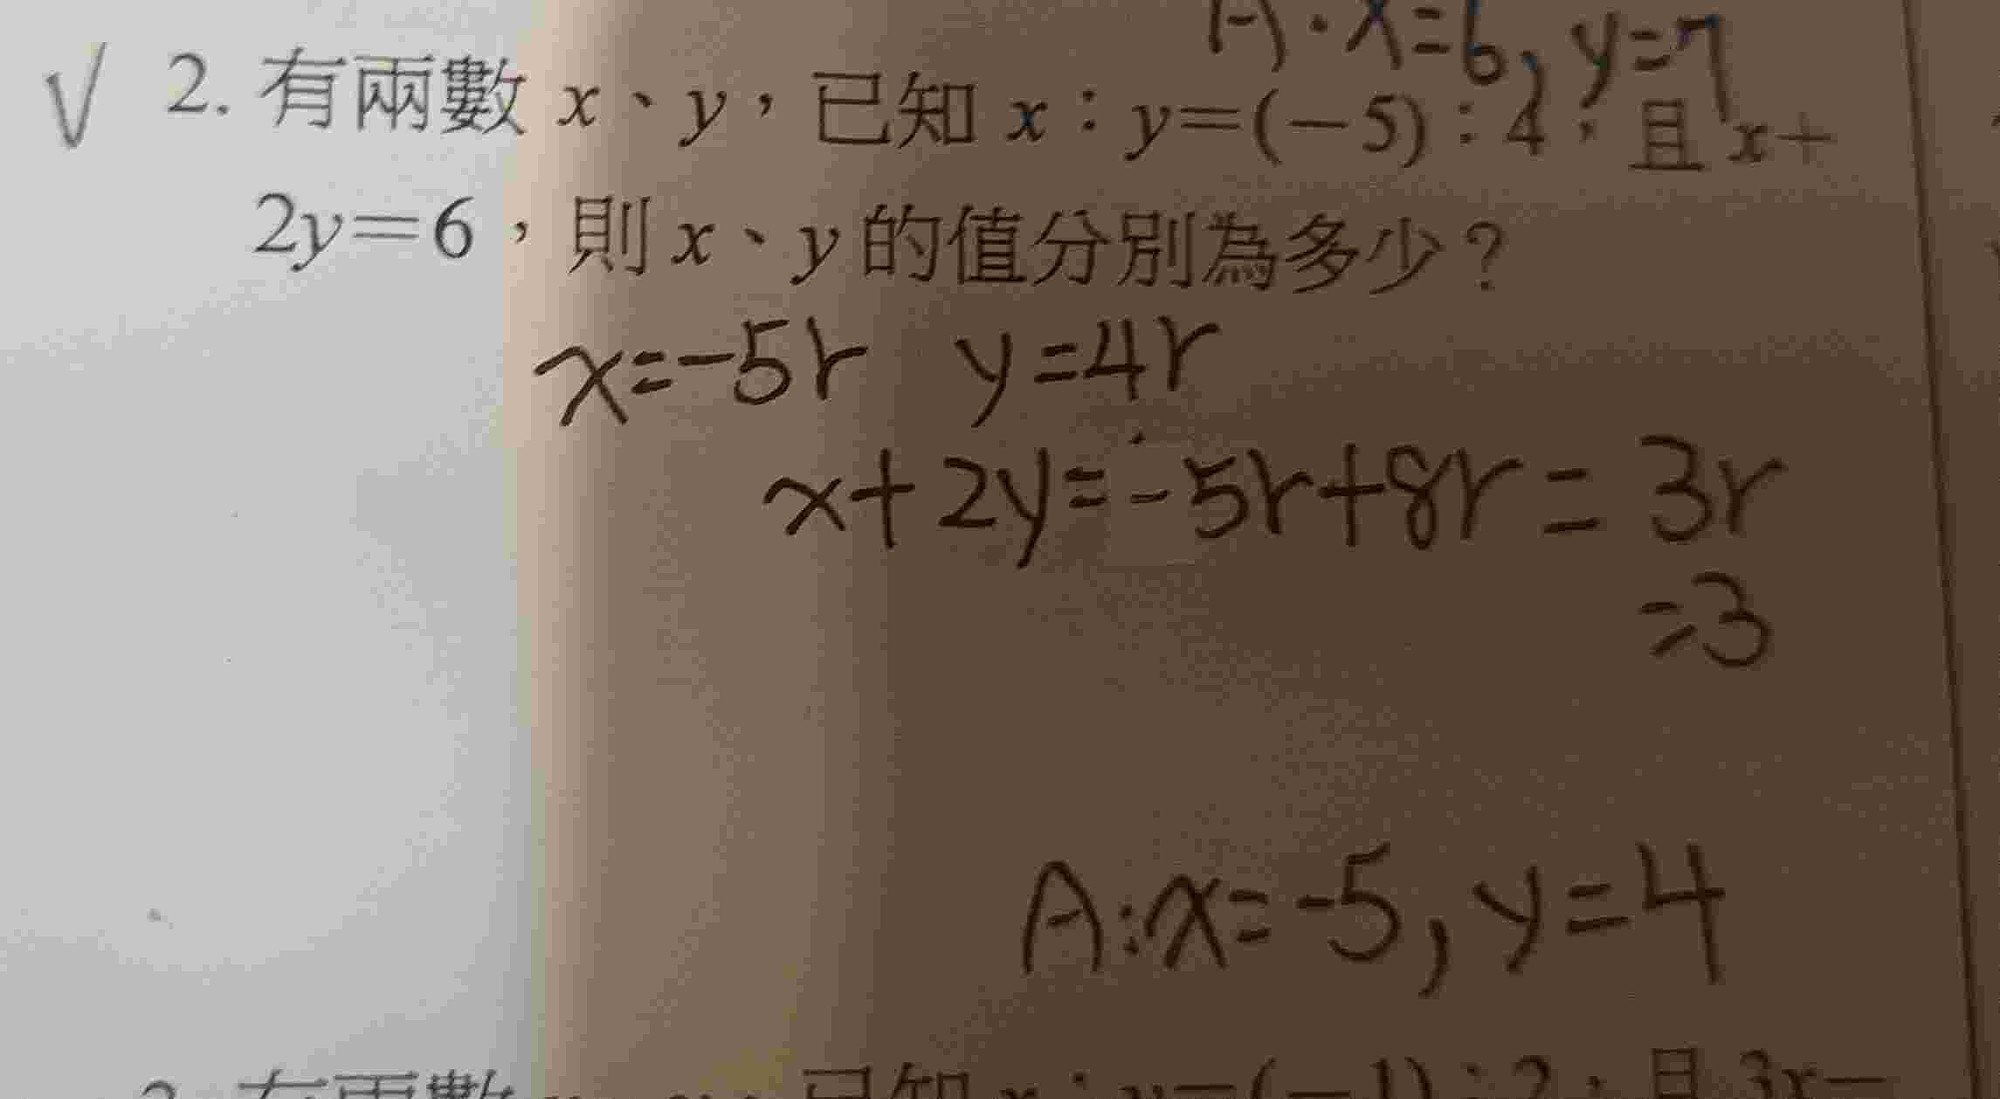 A: x=6, y=7
√ 2. 有兩數 x、y，已知 x：y=(−5)：4，且 x+
2y=6，則 x、y 的值分別為多少？
x=-5r y=4r
x+2y=-5r+8r=3r
=3
A:x=-5, y=4
有兩數 已知 x：y=(−1)：2，且 3x−